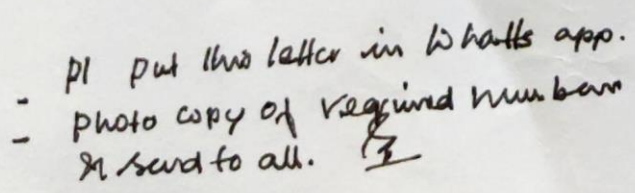 pl put this letter in Whatts app.
- photo copy of required numbers
- & send to all.